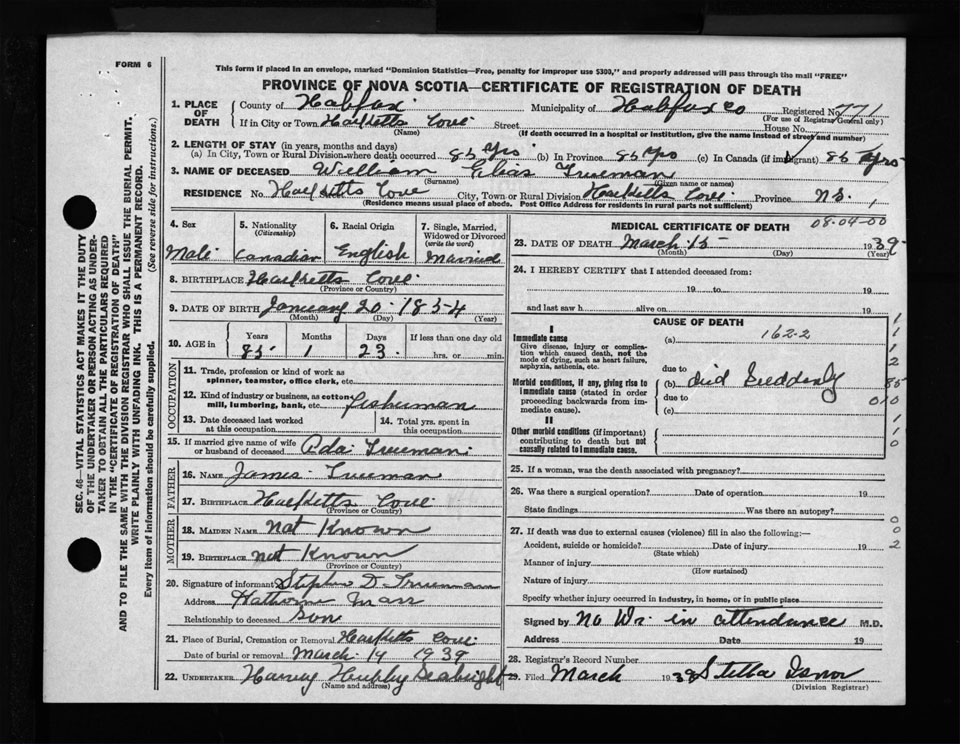 FORM 6
This form if placed in an envelope, marked "Dominion Statistics—Free, penalty for improper use $300," and properly addressed will pass through the mail "FREE"
PROVINCE OF NOVA SCOTIA—CERTIFICATE OF REGISTRATION OF DEATH
1. PLACE OF DEATH
County of Halifax Municipality of Halifax Co Registered No. 771
(For use of Registrar General only)
If in City or Town Hacketts Cove Street House No.
(Name) (If death occurred in a hospital or institution, give the name instead of street and number)
2. LENGTH OF STAY (in years, months and days)
(a) In City, Town or Rural Division where death occurred 85 yrs (b) In Province 85 yrs (c) In Canada (if immigrant) 85 yrs
3. NAME OF DECEASED William Elias Trueman
(Surname) (Given name or names)
RESIDENCE No. Hacketts Cove City, Town or Rural Division Hacketts Cove Province N.S.
(Residence means usual place of abode. Post Office Address for residents in rural parts not sufficient)
4. Sex Male
5. Nationality (Citizenship) Canadian
6. Racial Origin English
7. Single, Married, Widowed or Divorced (write the word) Married
8. BIRTHPLACE Hacketts Cove
(Province or Country)
9. DATE OF BIRTH January 20 1854
(Month) (Day) (Year)
10. AGE in Years Months Days If less than one day old
85 1 23 hrs. or min.
OCCUPATION
11. Trade, profession or kind of work as spinner, teamster, office clerk, etc.
12. Kind of industry or business, as cotton mill, lumbering, bank, etc. fisherman
13. Date deceased last worked at this occupation
14. Total yrs. spent in this occupation
15. If married give name of wife or husband of deceased Ada Trueman
FATHER
16. NAME James Trueman
17. BIRTHPLACE Hacketts Cove
(Province or Country)
MOTHER
18. MAIDEN NAME Not Known
19. BIRTHPLACE not Known
(Province or Country)
20. Signature of informant Stephen D. Trueman
Address Hathorne Mass
Relationship to deceased Son
21. Place of Burial, Cremation or Removal Hacketts Cove
Date of burial or removal March 19 1939
22. UNDERTAKER Harvey Hubley Seabright
(Name and address)
08-04-00
MEDICAL CERTIFICATE OF DEATH
23. DATE OF DEATH March 15 1939
(Month) (Day) (Year)
24. I HEREBY CERTIFY that I attended deceased from:
19 to 19
and last saw h alive on 19
CAUSE OF DEATH
I
Immediate cause
Give disease, injury or complication which caused death, not the mode of dying, such as heart failure, asphyxia, asthenia, etc.
(a) 162-2
due to
Morbid conditions, if any, giving rise to immediate cause (stated in order proceeding backwards from immediate cause).
(b) died Suddenly
due to
(c)
II
Other morbid conditions (if important) contributing to death but not causally related to immediate cause.
1
1
2
85
1
1
0
25. If a woman, was the death associated with pregnancy?
26. Was there a surgical operation? Date of operation 19
State findings Was there an autopsy?
27. If death was due to external causes (violence) fill in also the following:—
Accident, suicide or homicide? Date of injury 19
(State which)
Manner of injury
(How sustained)
Nature of injury
Specify whether injury occurred in industry, in home, or in public place
0
0
2
Signed by No Dr. in attendance M.D.
Address Date 19
28. Registrar's Record Number
29. Filed March 1939 Stella Isnor
(Division Registrar)
SEC. 46—VITAL STATISTICS ACT MAKES IT THE DUTY
OF THE UNDERTAKER OR PERSON ACTING AS UNDERTAKER TO OBTAIN ALL THE PARTICULARS REQUIRED
IN THE "CERTIFICATE OF REGISTRATION OF DEATH"
AND TO FILE THE SAME WITH THE DIVISION REGISTRAR WHO SHALL ISSUE THE BURIAL PERMIT.
WRITE PLAINLY WITH UNFADING INK. THIS IS A PERMANENT RECORD.
Every item of information should be carefully supplied. (See reverse side for instructions.)